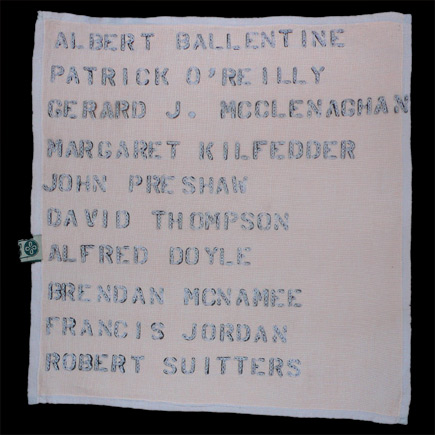 ALBERT BALLENTINE
PATRICK O'REILLY
GERARD J. MCCLENAGHAN
MARGARET KILFEDDER
JOHN PRESHAW
DAVID THOMPSON
ALFRED DOYLE
BRENDAN MCNAMEE
FRANCIS JORDAN
ROBERT SUITTERS